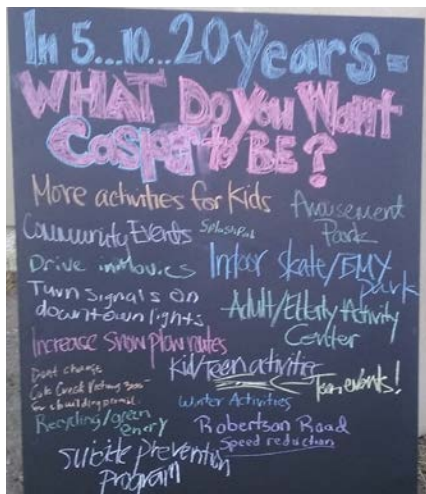 In 5...10...20 years-
WHAT Do You Want
Casper to BE?
More activities for Kids
Amusement
Park
Community Events
Splash Pad
Drive in Movies
Indoor skate/BMX
Park
Turn signals on
downtown lights
Adult/Elderly Activity
Center
Increase snow plow routes
Kid/Teen activities
Teen events!
Dont charge
for a building permit.
Winter Activities
Recycling/green
enery
Robertson Road
Speed reduction
Suicide Prevention
Program